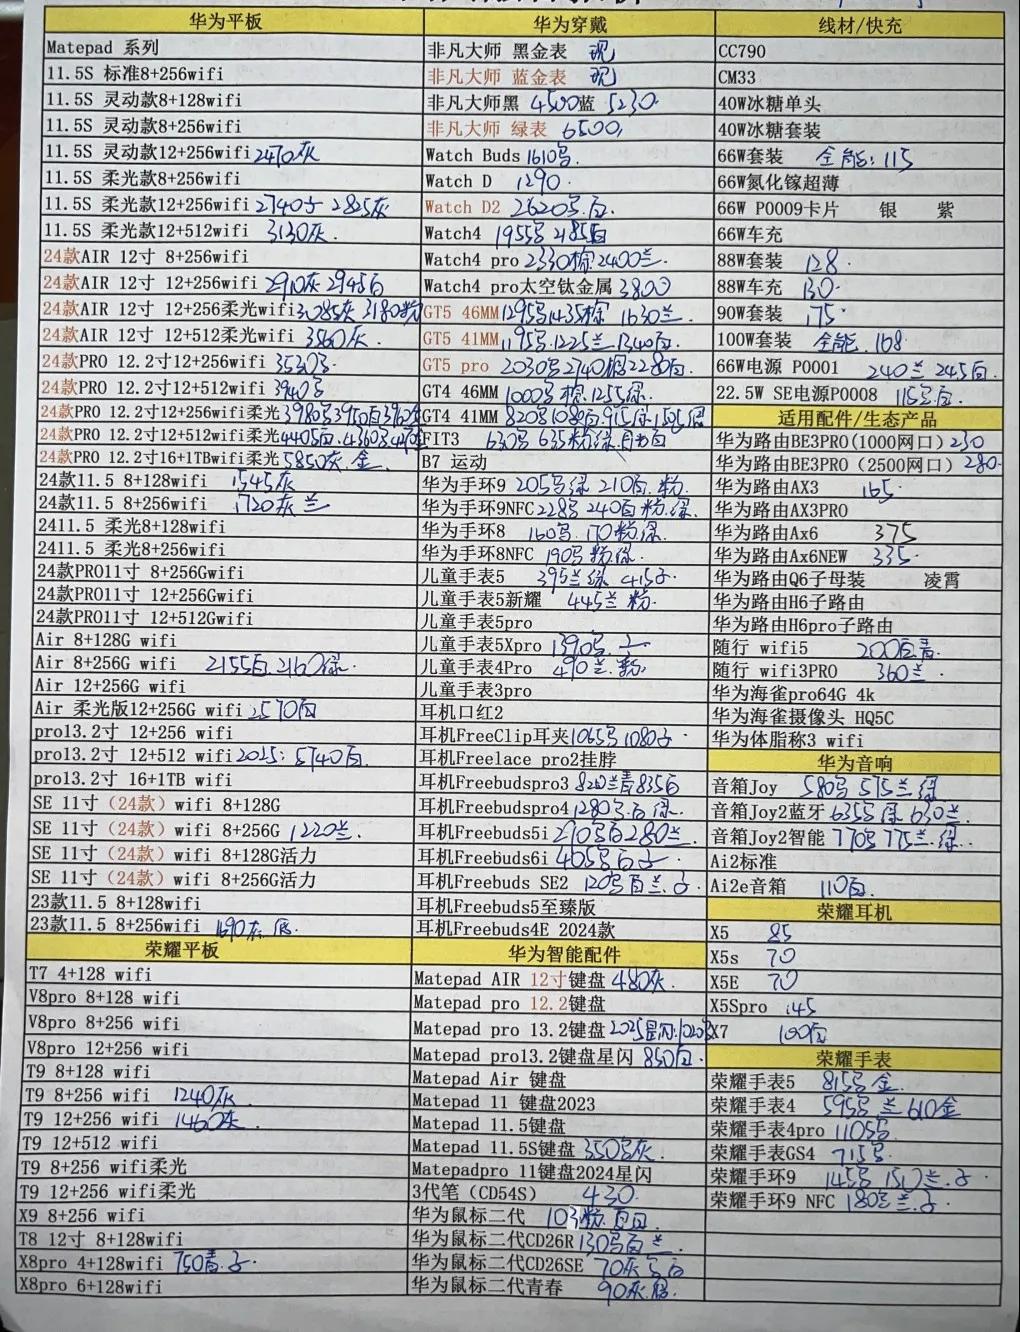 华为平板
Matepad 系列
11.5S 标准8+256wifi
11.5S 灵动款8+128wifi
11.5S 灵动款8+256wifi
11.5S 灵动款12+256wifi 2470灰
11.5S 柔光款8+256wifi
11.5S 柔光款12+256wifi 2740子 2825灰
11.5S 柔光款12+512wifi 3130灰.
24款AIR 12寸 8+256wifi
24款AIR 12寸 12+256wifi 2910灰 2945白
24款AIR 12寸 12+256柔光wifi 3085灰 3180粉
24款AIR 12寸 12+512柔光wifi 3560灰.
24款PRO 12.2寸12+256wifi 3530号
24款PRO 12.2寸12+512wifi 3940号
24款PRO 12.2寸12+256wifi柔光 3980号3950白
24款PRO 12.2寸12+512wifi柔光 4405白.4360号
24款PRO 12.2寸16+1TBwifi柔光 5850灰.金.
24款11.5 8+128wifi 1545灰
24款11.5 8+256wifi 1720灰 兰
2411.5 柔光8+128wifi
2411.5 柔光8+256wifi
24款PRO11寸 8+256Gwifi
24款PRO11寸 12+256Gwifi
24款PRO11寸 12+512Gwifi
Air 8+128G wifi
Air 8+256G wifi 2155白.2160绿.
Air 12+256G wifi
Air 柔光版12+256G wifi 2570白
pro13.2寸 12+256 wifi
pro13.2寸 12+512 wifi 2025: 5740白.
pro13.2寸 16+1TB wifi
SE 11寸（24款）wifi 8+128G
SE 11寸（24款）wifi 8+256G 1220兰.
SE 11寸（24款）wifi 8+128G活力
SE 11寸（24款）wifi 8+256G活力
23款11.5 8+128wifi
23款11.5 8+256wifi 1690灰.
荣耀平板
T7 4+128 wifi
V8pro 8+128 wifi
V8pro 8+256 wifi
V8pro 12+256 wifi
T9 8+128 wifi
T9 8+256 wifi 1240灰
T9 12+256 wifi 1460灰.
T9 12+512 wifi
T9 8+256 wifi柔光
T9 12+256 wifi柔光
X9 8+256 wifi
T8 12寸 8+128wifi
X8pro 4+128wifi 750青.子.
X8pro 6+128wifi
华为穿戴
非凡大师 黑金表 现
非凡大师 蓝金表 现
非凡大师黑 4500蓝 5230.
非凡大师 绿表 6500,
Watch Buds 1610号.
Watch D 1290.
Watch D2 2620号.白.
Watch4 1955号 2185白
Watch4 pro 2330棕2400兰.
Watch4 pro太空钛金属 3800
GT5 46MM 1295号1435棕 1630兰.
GT5 41MM 1195号.1225兰.1340白.
GT5 pro 2030号2140棕2280白.
GT4 46MM 1000号.棕.1255绿.
GT4 41MM 820号1080白.915绿.1505绿
FIT3 630号 635粉绿.白
B7 运动
华为手环9 205号绿 210白.粉.
华为手环9NFC 228号 240白 粉.绿.
华为手环8 160号. 170粉.绿.
华为手环8NFC 190号 粉.绿.
儿童手表5 395兰绿 415子.
儿童手表5新耀 445兰 粉.
儿童手表5pro
儿童手表5Xpro 1390号. 子.
儿童手表4Pro 490兰.粉.
儿童手表3pro
耳机口红2
耳机FreeClip耳夹 1065号 1080子.
耳机Freelace pro2挂脖
耳机Freebudspro3 820兰青835白
耳机Freebudspro4 1280号.白 绿.
耳机Freebuds5i 270号白 280兰.
耳机Freebuds6i 405号白子.
耳机Freebuds SE2 120号白兰.子.
耳机Freebuds5至臻版
耳机Freebuds4E 2024款
华为智能配件
Matepad AIR 12寸键盘 480灰.
Matepad pro 12.2键盘
Matepad pro 13.2键盘 2025星闪:1020
Matepad pro13.2键盘星闪 850白.
Matepad Air 键盘
Matepad 11 键盘2023
Matepad 11.5键盘
Matepad 11.5S键盘 350号灰.
Matepadpro 11键盘2024星闪
3代笔（CD54S） 430.
华为鼠标二代 103粉.
华为鼠标二代CD26R 130号白 兰.
华为鼠标二代CD26SE 70灰号白
华为鼠标二代青春 90灰.
线材/快充
CC790
CM33
40W冰糖单头
40W冰糖套装
66W套装 全能: 115
66W氮化镓超薄
66W P0009卡片 银 紫
66W车充
88W套装 128.
88W车充 130.
90W套装 175.
100W套装 全能.168.
66W电源 P0001 240兰 245白
22.5W SE电源P0008 115号白.
适用配件/生态产品
华为路由BE3PRO(1000网口) 230
华为路由BE3PRO（2500网口）280.
华为路由AX3 165.
华为路由AX3PRO
华为路由Ax6 375
华为路由Ax6NEW 335.
华为路由Q6子母装 凌霄
华为路由H6子路由
华为路由H6pro子路由
随行 wifi5 200白青.
随行 wifi3PRO 360兰.
华为海雀pro64G 4k
华为海雀摄像头 HQ5C
华为体脂称3 wifi
华为音响
音箱Joy 580号 575兰绿
音箱Joy2蓝牙 635号绿 630兰.
音箱Joy2智能 770号 775兰.绿.
Ai2标准
Ai2e音箱 110白.
荣耀耳机
X5 85
X5s 70
X5E 70
X5Spro 145
X7 100白
荣耀手表
荣耀手表5 815号 金.
荣耀手表4 595号 兰 610金
荣耀手表4pro 1105号
荣耀手表GS4 715号.
荣耀手环9 145号 150兰.子.
荣耀手环9 NFC 180号 兰.子.